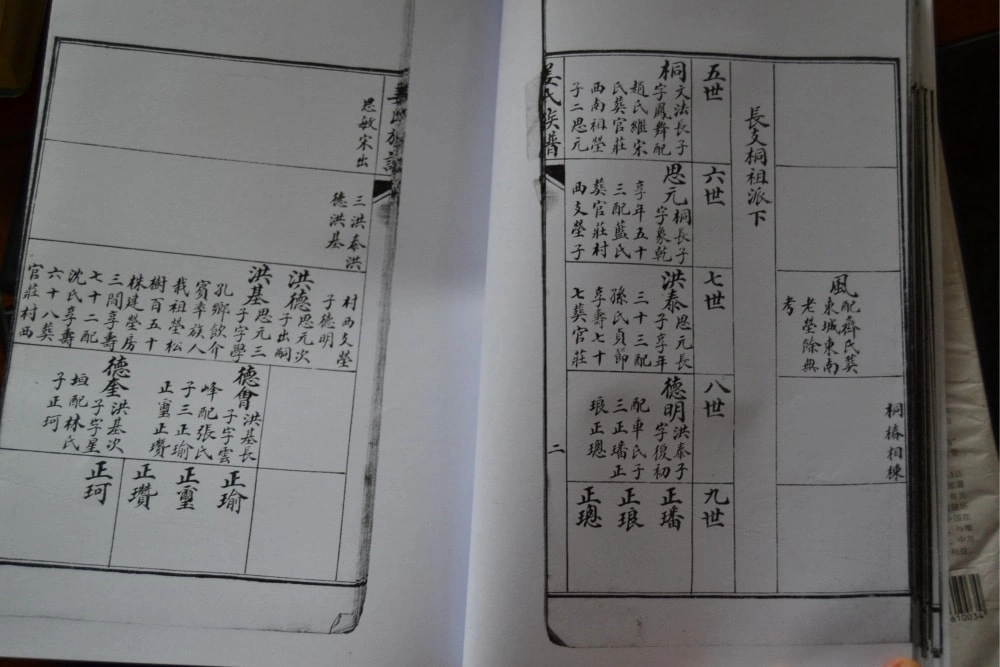 桐椿相棟
風配齊氏葬
東城東南
老塋餘無
考
長支桐祖派下
五世
六世
七世
八世
九世
桐文法長子
字鳳舞配
趙氏繼宋
氏葬官莊
西南祖塋
子二思元
思元桐長子
字象乾
享年五十
三配藍氏
葬官莊村
西支塋子
洪泰思元長
子享年
三十三配
孫氏貞節
享壽七十
七葬官莊
德明洪泰子
字復初
配車氏子
三正璠正
琅正璁
正璠
正琅
正璁
姜氏族譜
二
思敏宋出
三洪泰洪
德洪基
村西支塋
子德明
洪德思元次
子出嗣
洪基思元三
子字學
孔鄉飲介
賓率族人
栽祖塋松
樹百五十
株建塋房
三間享壽
七十二配
沈氏享壽
六十八葬
官莊村西
德會洪基長
子字雲
峰配張氏
子三正瑜
正璽正瓚
德奎洪基次
子字星
垣配林氏
子正珂
正瑜
正璽
正瓚
正珂